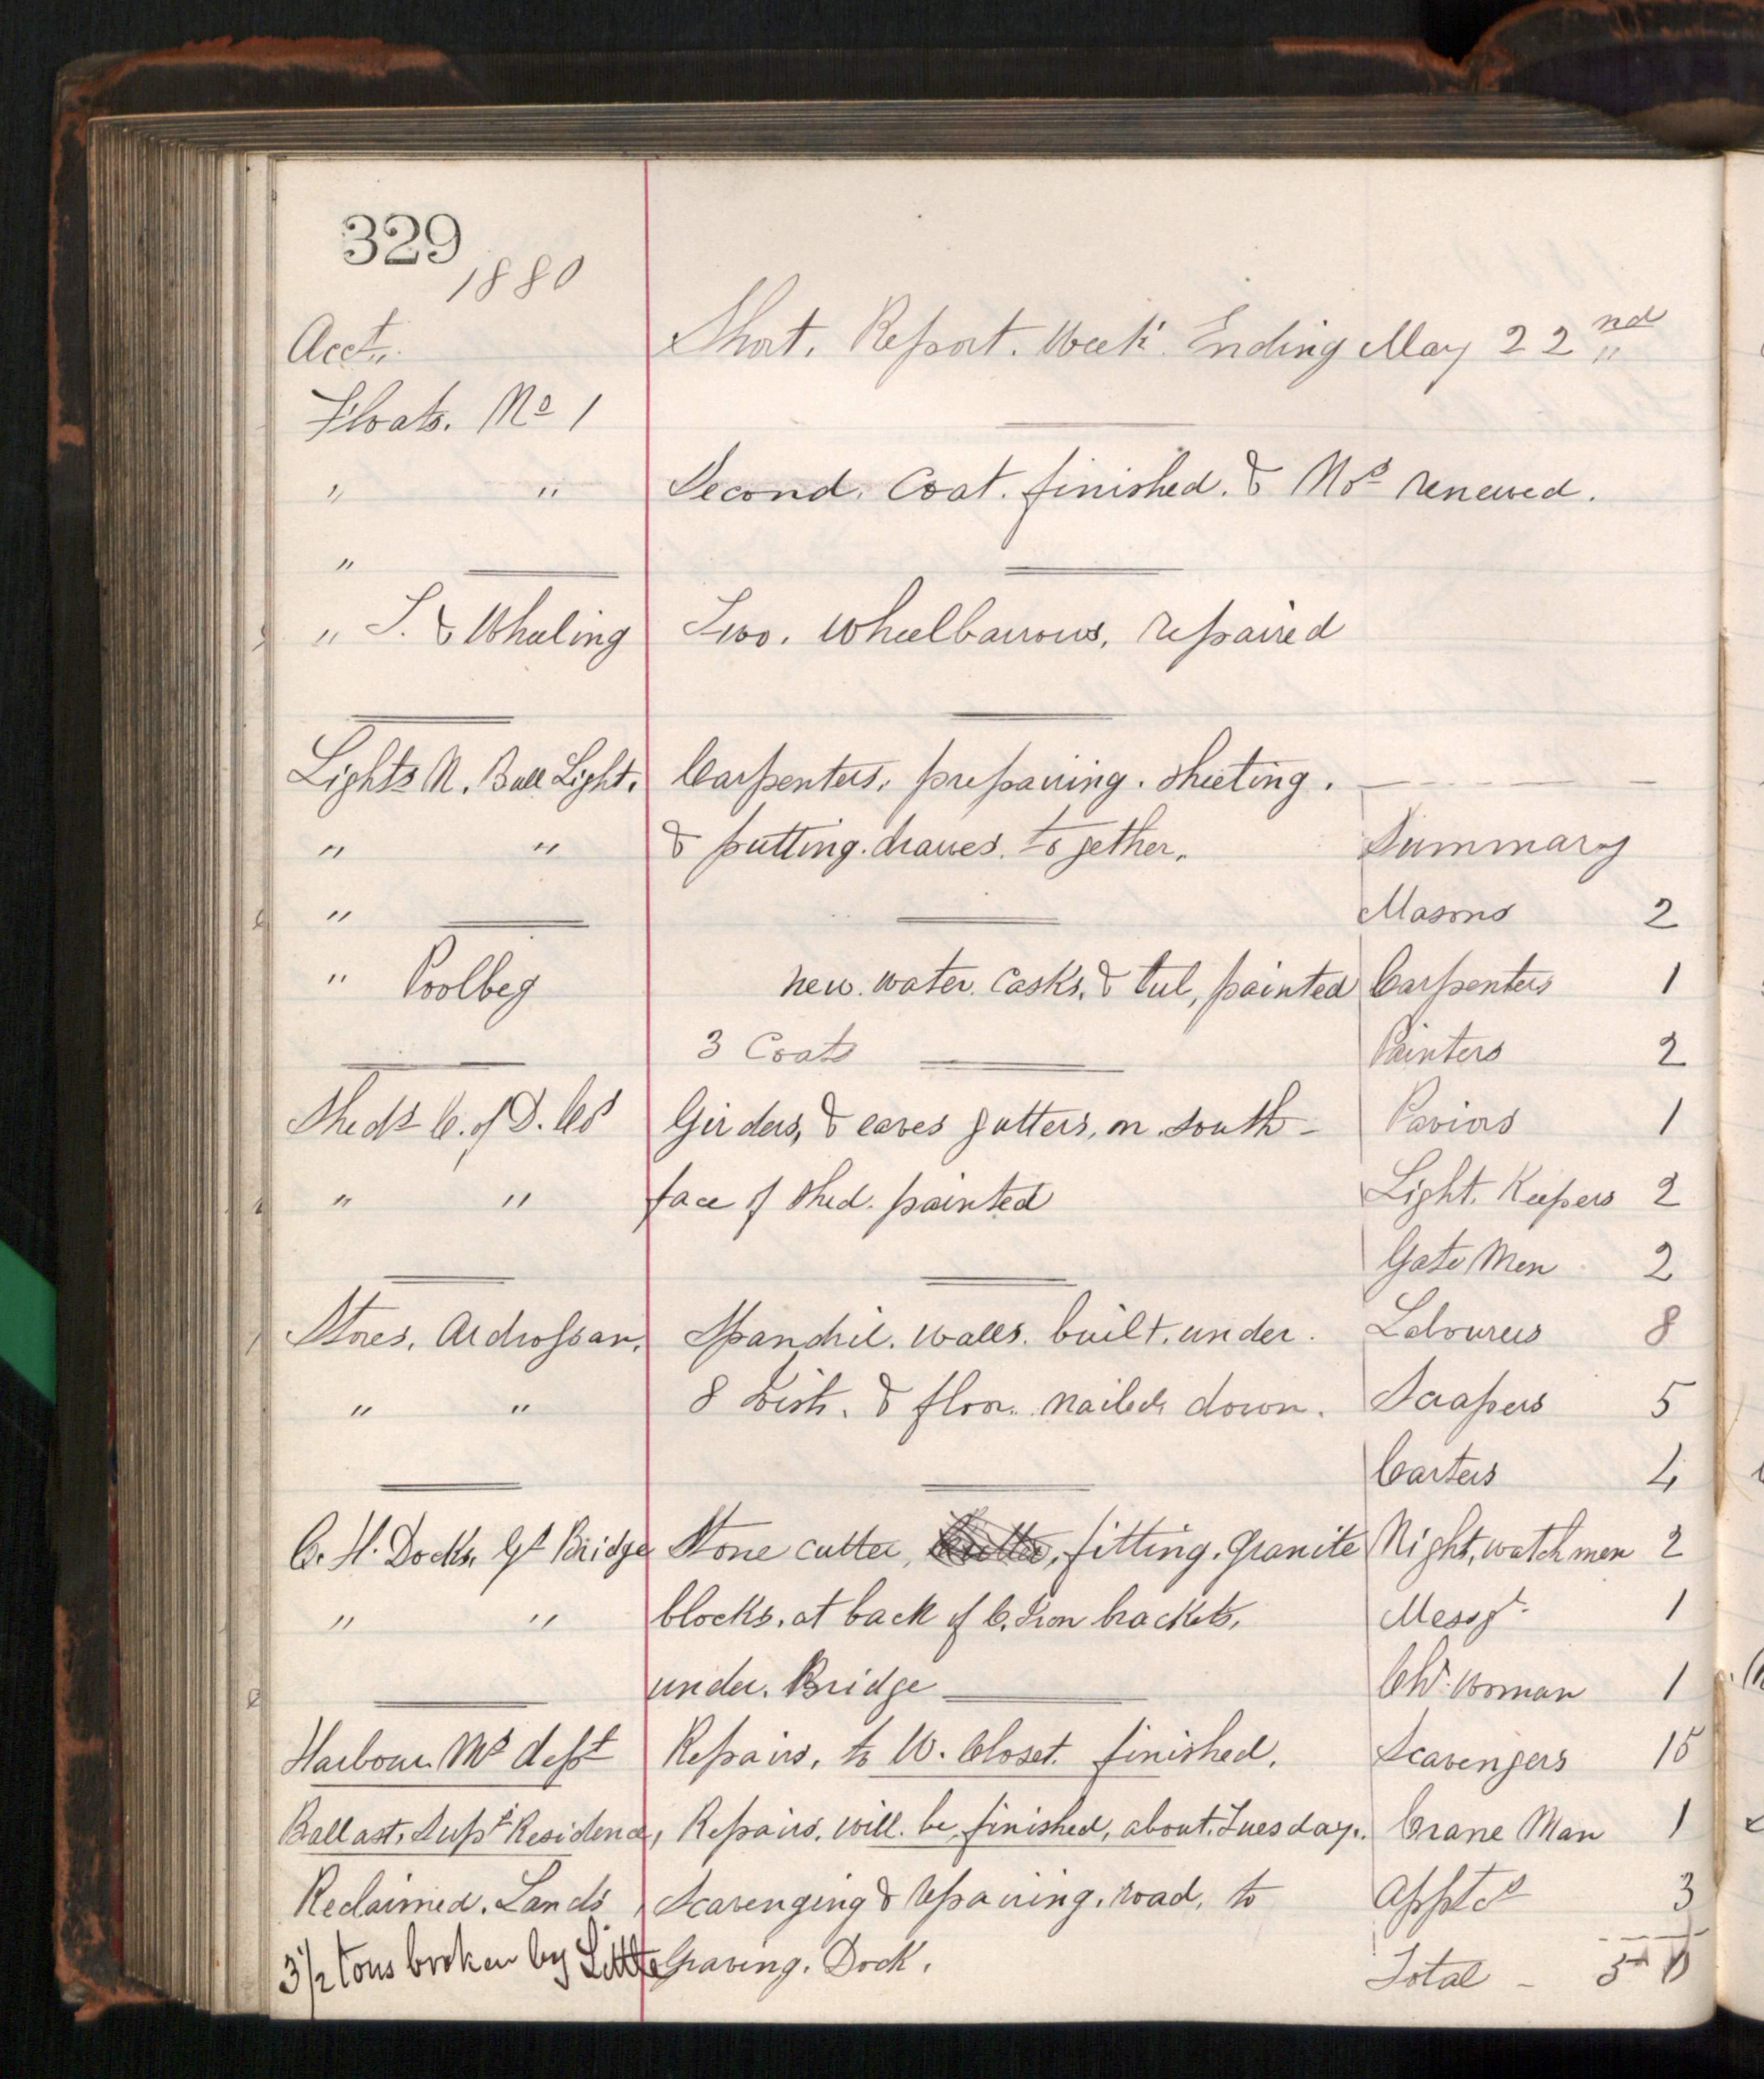 329
1880
Acct.
Short. Report. Week Ending May 22nd
Floats. No 1
" " Second. Coat. finished. & Nos renewed.
"
" S. & Whaling Two. wheelbarrows, repaired
Lights N. Bull Light. Carpenters, preparing. sheeting.
" " & putting. together. Summary
" Masons 2
" Poolbeg new. water. casks. & tub, painted Carpenters 1
3 Coats Painters 2
Sheds C. of D. Co Girders, & eaves gutters, on. South - Paviors 1
" " face of Shed. painted Light. Keepers 2
Gate Men 2
Stores, Ardrossan. Spandril. walls. built. under. Labourers 8
" " 8 & floor. nailed down. Scrapers 5
Carters 4
C. H. Docks, Gt Bridge Stone cutter, fitting. granite Night, watch men 2
" " blocks. at back of C. Iron brackets, Messgr 1
under. Bridge Chr. Woman 1
Harbour Mrs dept Repairs, to W. Closet. finished. Scavengers 15
Ballast, Supts Residence, Repairs. will. be finished, about. Tuesday. Crane Man 1
Reclaimed. Lands Scavenging & repairing. road. to Apptes 3
3 1/2 tons broken by Little Graving. Dock. Total -